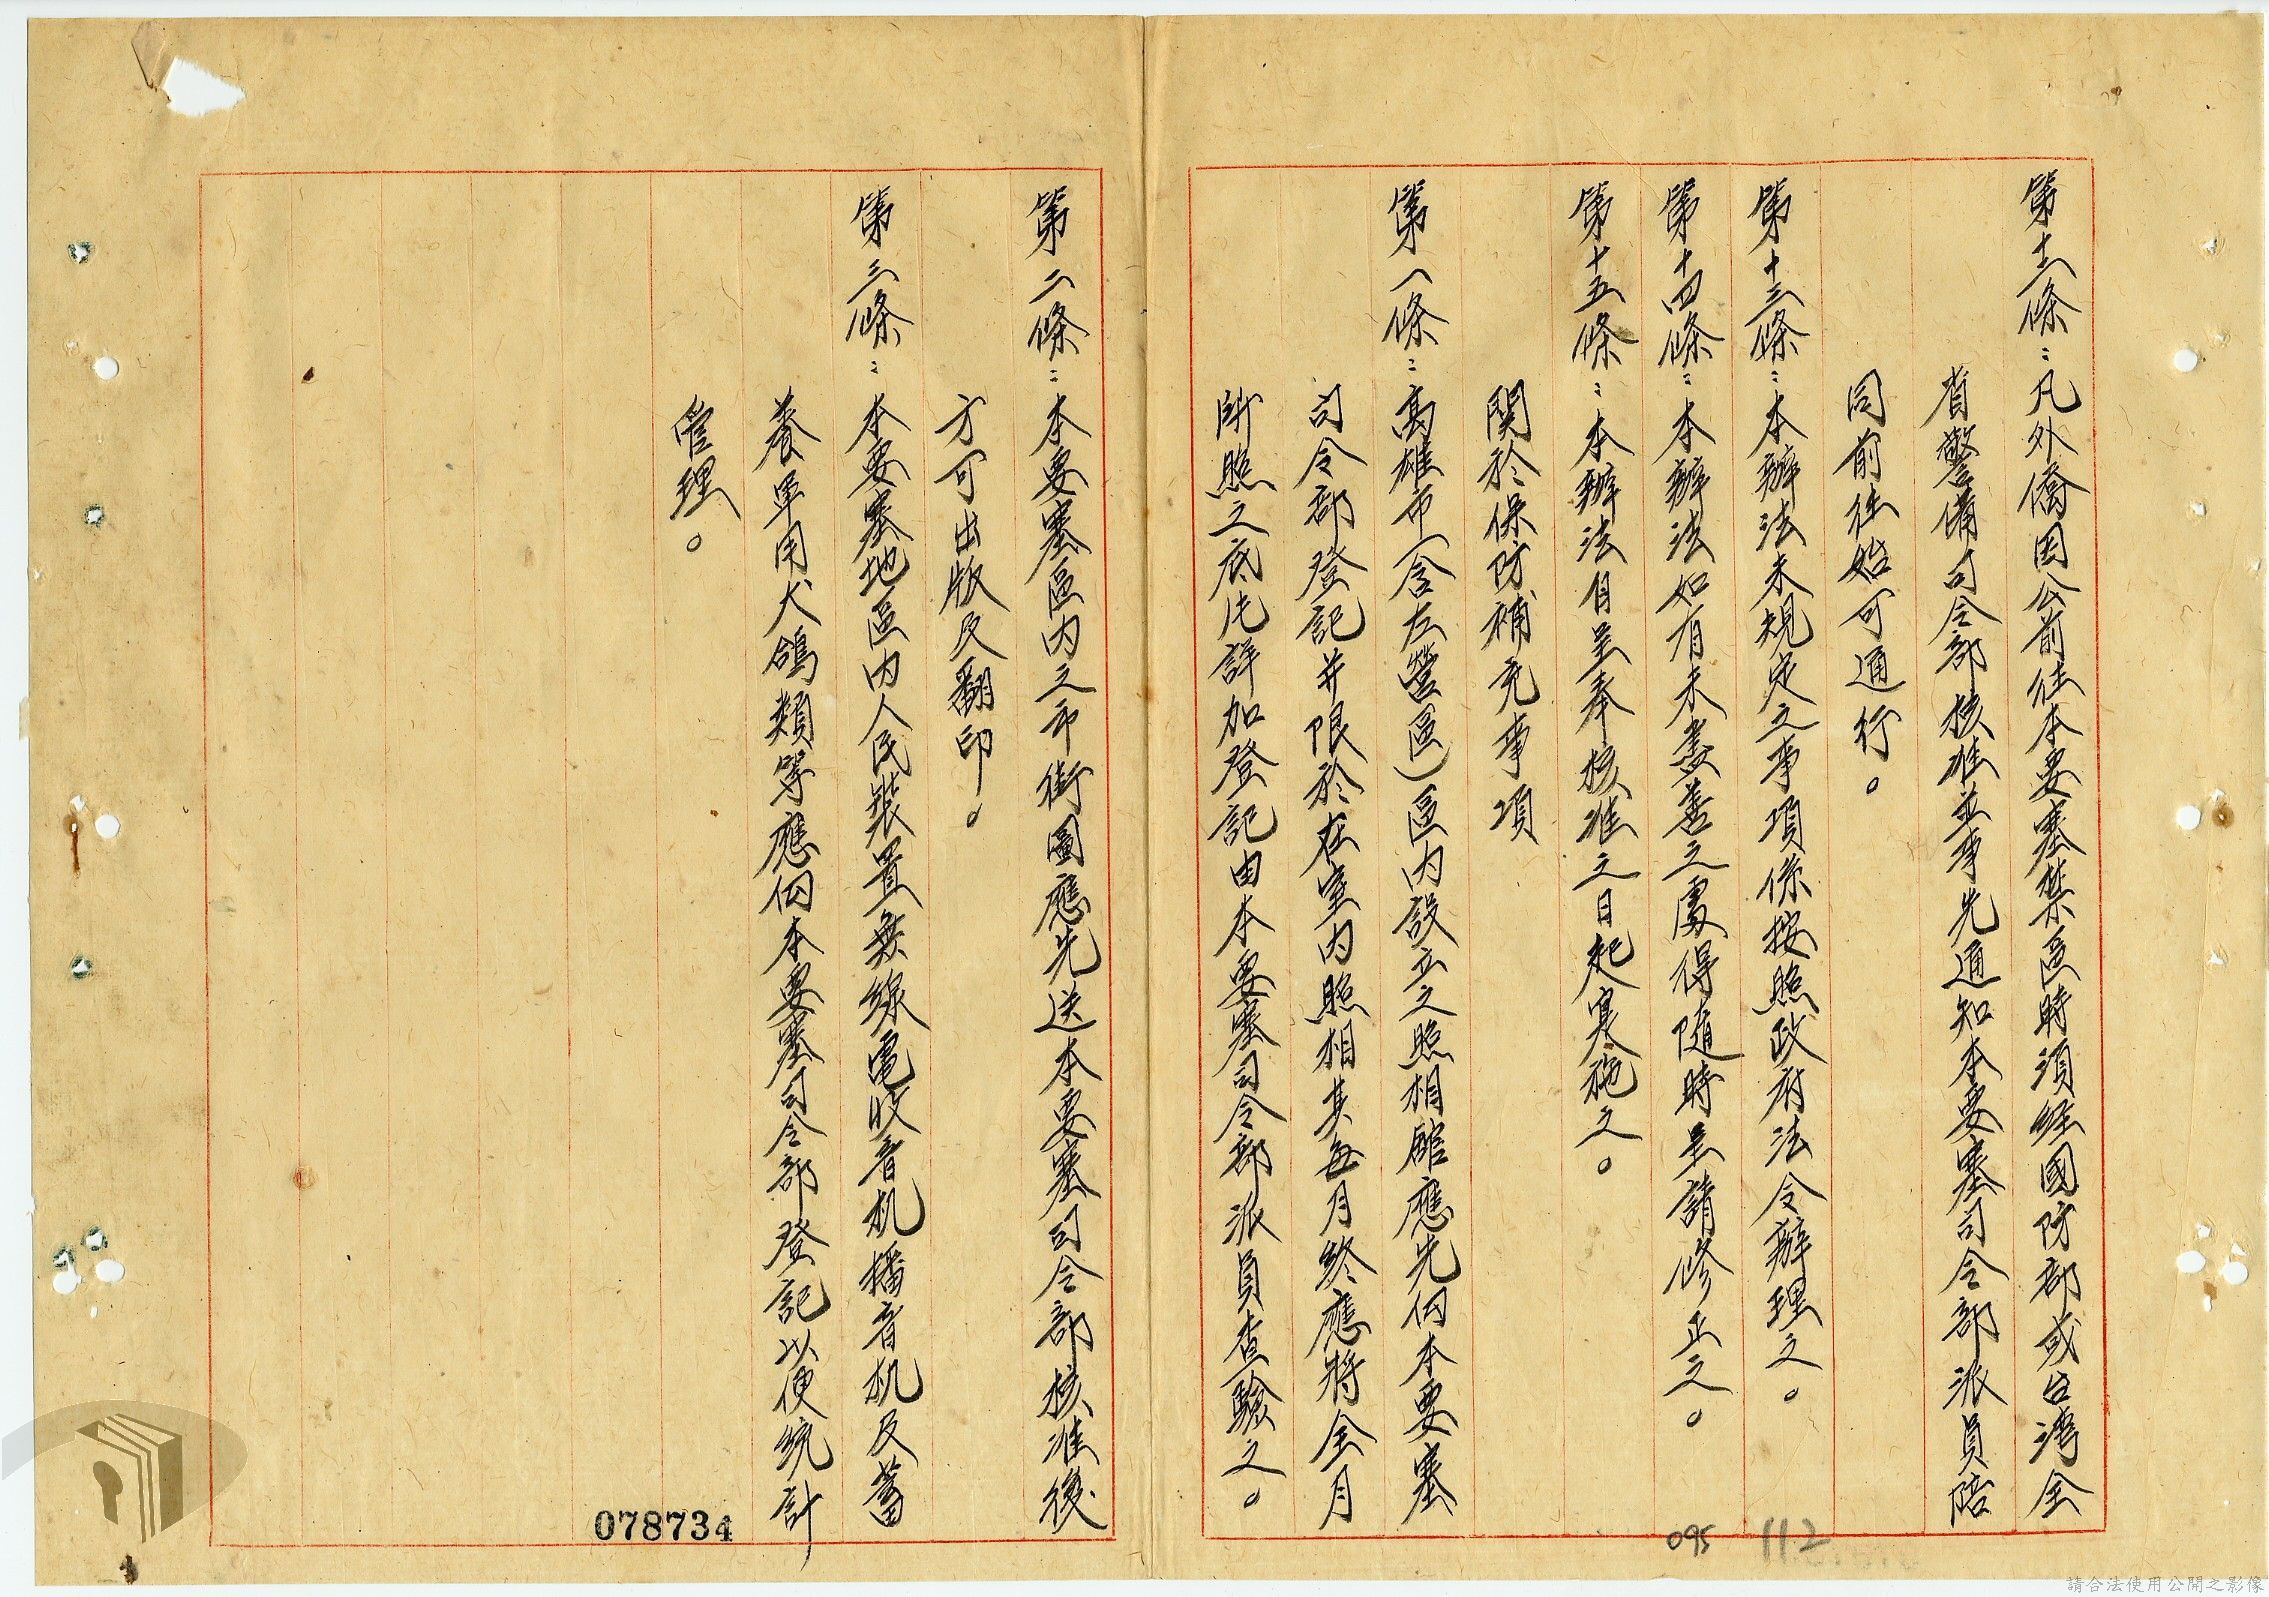 第十二條：凡外僑因公前往本要塞禁區時須経國防部或台湾全
省警備司令部核准並事先通知本要塞司令部派員陪
同前往始可通行。
第十三條：本辦法未規定之事項係按照政府法令辦理之。
第十四條：本辦法如有未盡善之處得隨時呈請修正之。
第十五條：本辦法自呈奉核准之日起実施之。
関於保防補充事項
第一條：高雄市（含左營區）區内設立之照相舘應先向本要塞
司令部登記并限於在室内照相其每月終應將全月
所照之底片詳加登記由本要塞司令部派員查驗之。
第二條：本要塞區内之市街圖應先送本要塞司令部核准後
方可出版及翻印。
第三條：本要塞地區内人民裝置無線電收音机播音机及蓄
養軍用犬鴿類等應向本要塞司令部登記以便統計
管理。
078734
095
112
請合法使用公開之影像